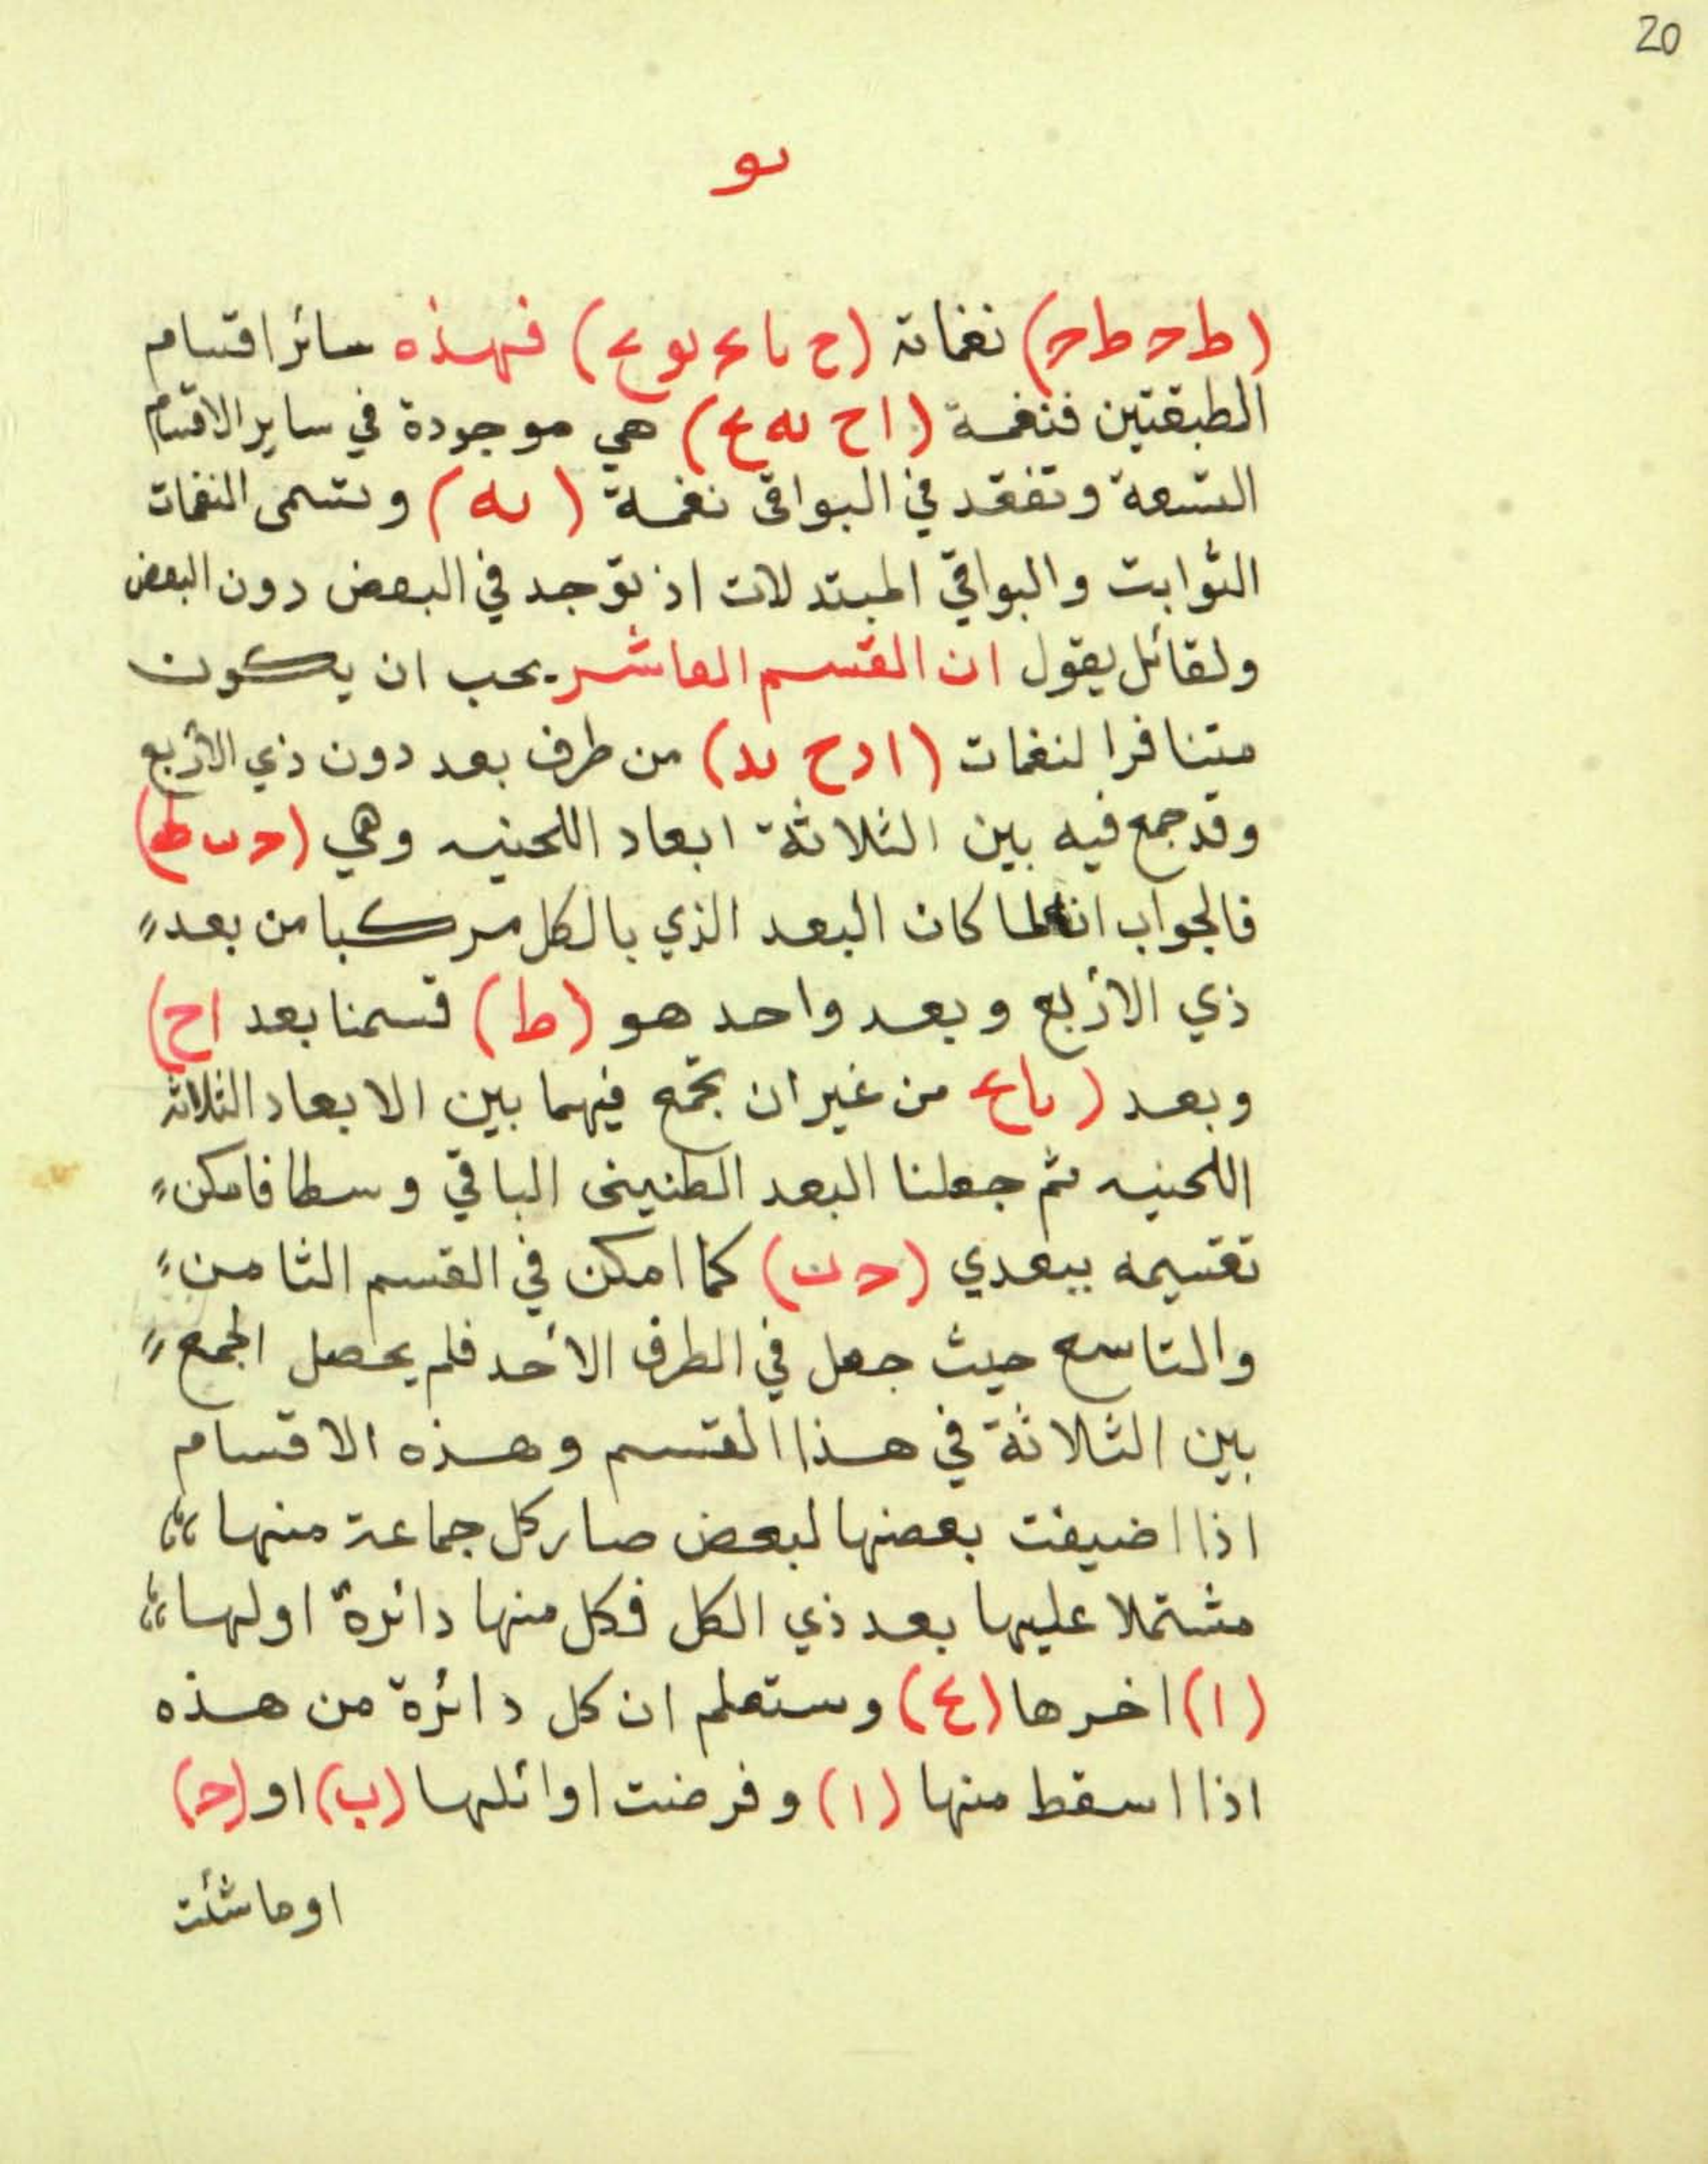 20
يو
(ط ج ط ج) نغماته (ح يا يج يو يح) فهذه سائر اقسام
الطبقتين فنغمة (ا ح يه يح) هي موجودة في ساير الاقسام
التسعة وتفقد في البواقى نغمة (يه) وتسمى النغمات
الثوابت والبواقي المبتدلات اذ توجد في البعض دون البعض
ولقائل يقول ان القسم العاشر يجب ان يكون
متنافرا لنغمات (ا د ح يد) من طرف بعد دون ذي الأربع
وقد جمع فيه بين الثلاثة ابعاد اللحنيه وهي (ج ب ط)
فالجواب لما كان البعد الذي بالكل مركبا من بعد
ذي الأربع وبعد واحد هو (ط) قسمنا بعد ا ح)
وبعد (يا يح من غير ان تجمع فيهما بين الابعاد الثلاثه
اللحنيه ثم جعلنا البعد الطنينى الباقي وسطا فامكن
تقسيمه ببعدي (ج ب) كما امكن في القسم الثامن
والتاسع حيث جعل في الطرف الأحد فلم يحصل الجمع
بين الثلاثة في هذا القسم وهذه الاقسام
اذا اضيفت بعضها لبعض صار كل جماعة منها
مشتملا عليها بعد ذي الكل فكل منها دائرة اولها
(ا) اخرها (يح) وستعلم ان كل دائرة من هذه
اذا اسقط منها (ا) وفرضت اوائلها (ب) او (ج)
او ما شئت